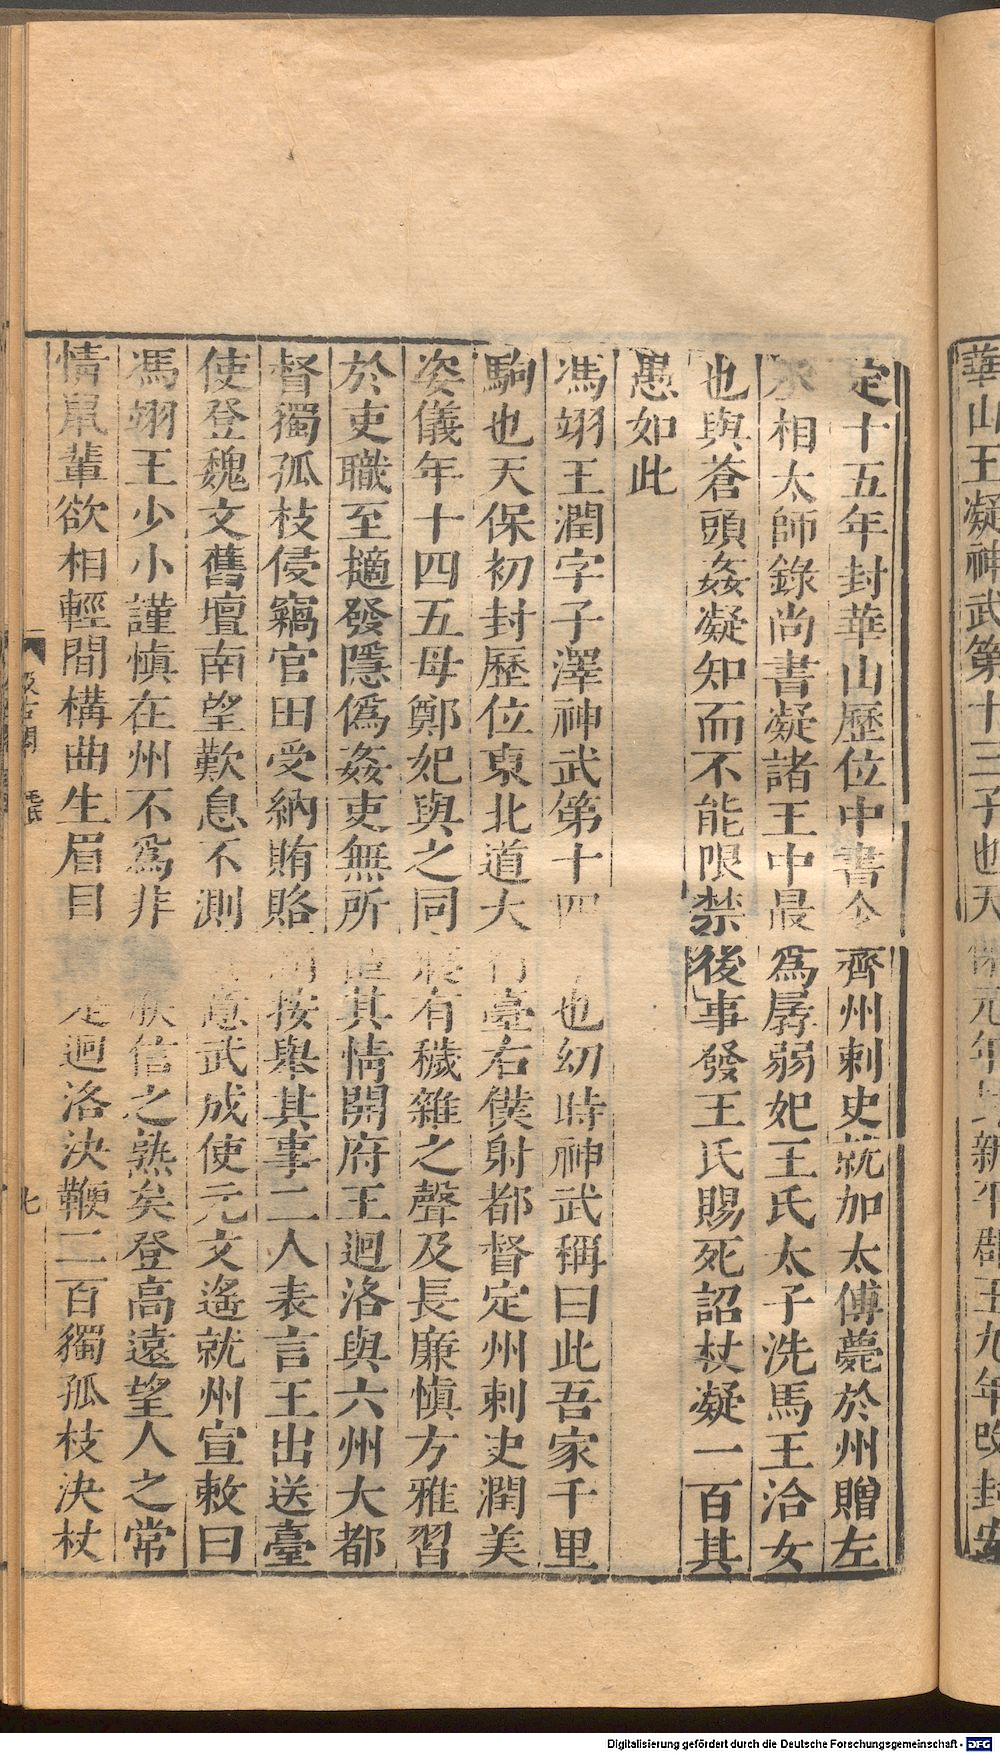 華山王凝神武第十三子也天保元年封新平郡王九年改封安
定十五年封華山歷位中書令齊州刺史就加太傅薨於州贈左
丞相太師錄尚書凝諸王中最爲孱弱妃王氏太子洗馬王洽女
也與蒼頭姦凝知而不能限禁後事發王氏賜死詔杖凝一百其
愚如此
馮翊王潤字子澤神武第十四子也幼時神武稱曰此吾家千里
駒也天保初封歷位東北道大行臺右僕射都督定州刺史潤美
姿儀年十四五母鄭妃與之同寢有穢雜之聲及長廉愼方雅習
於吏職至擿發隱僞姦吏無所匿其情開府王迴洛與六州大都
督獨孤枝侵竊官田受納賄賂潤按舉其事二人表言王出送臺
使登魏文舊壇南望歎息不測其意武成使元文遙就州宣敕曰
馮翊王少小謹愼在州不爲非朕信之熟矣登高遠望人之常
情鼠輩欲相輕間構曲生眉目於是迴洛決鞭二百獨孤枝決杖
汲古閣 毛氏
七
Digitalisierung gefördert durch die Deutsche Forschungsgemeinschaft - DFG